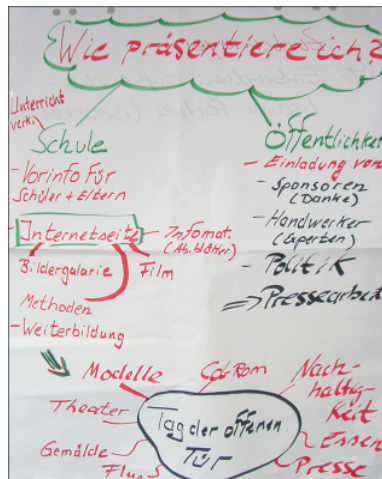 Wie präsentiere ich?
Unterricht
verk.
Schule
- Vorinfo für
Schüler + Eltern
- Internetseite
- Infomat.
(Ab. blätter)
Bildergalarie
Film
Methoden
- Weiterbildung
Öffentlichkei
- Einladung von
- Sponsoren
(Danke)
- Handwerker
(Experten)
- Politik
=> Pressearbeit
Tag der offenen
Tür
Modelle
Cd-Rom
Nach-
haltig-
keit
Theater
Essen
Gemälde
Presse